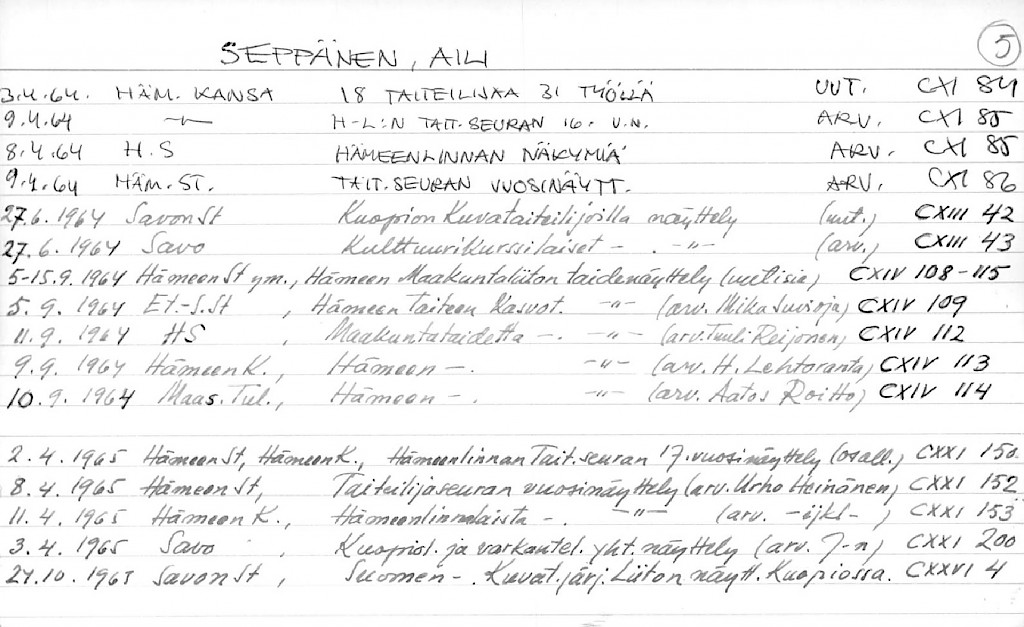 5
SEPPÄNEN, AILI
3.4.64. HÄM. KANSA 18 TAITEILIJAA 31 TYÖLLÄ UUT. CXI 84
9.4.64 -"- H-L:N TAIT.SEURAN 16. V.N. ARV. CXI 85
8.4.64 H.S HÄMEENLINNAN NÄKYMIÄ ARV. CXI 85
9.4.64 HÄM.ST. TAIT.SEURAN VUOSINÄYTT. ARV. CXI 86
27.6.1964 SavonSt Kuopion Kuvataiteilijoilla näyttely (uut.) CXIII 42
27.6.1964 Savo Kulttuurikurssilaiset -. -"- (arv.) CXIII 43
5-15.9.1964 HämeenSt ym., Hämeen Maakuntaliiton taidenäyttely (uutisia) CXIV 108-115
5.9.1964 Et-S.St , Hämeen Taiteen Kasvot. -"- (arv. Mika Suvioja) CXIV 109
11.9.1964 HS , Maakuntataidetta -. -"- (arv. Tuuli Reijonen) CXIV 112
9.9.1964 HämeenK., Hämeen -. -"- (arv. H. Lehtoranta) CXIV 113
10.9.1964 Maas.Tul., Hämeen -. -"- (arv. Aatos Roitto) CXIV 114
2.4.1965 HämeenSt, HämeenK., Hämeenlinnan Tait.seuran 17.vuosinäyttely (osall.) CXXI 150
8.4.1965 HämeenSt, Taiteilijaseuran vuosinäyttely (arv. Urho Heinänen) CXXI 152
11.4.1965 HämeenK., Hämeenlinnalaista -. -"- (arv. -ijkl- ) CXXI 153
3.4.1965 Savo , Kuopiol. ja varkautel. yht. näyttely (arv. J-n) CXXI 200
24.10.1965 SavonSt , Suomen -. Kuvat.järj. Liiton näytt. Kuopiossa. CXXVI 4